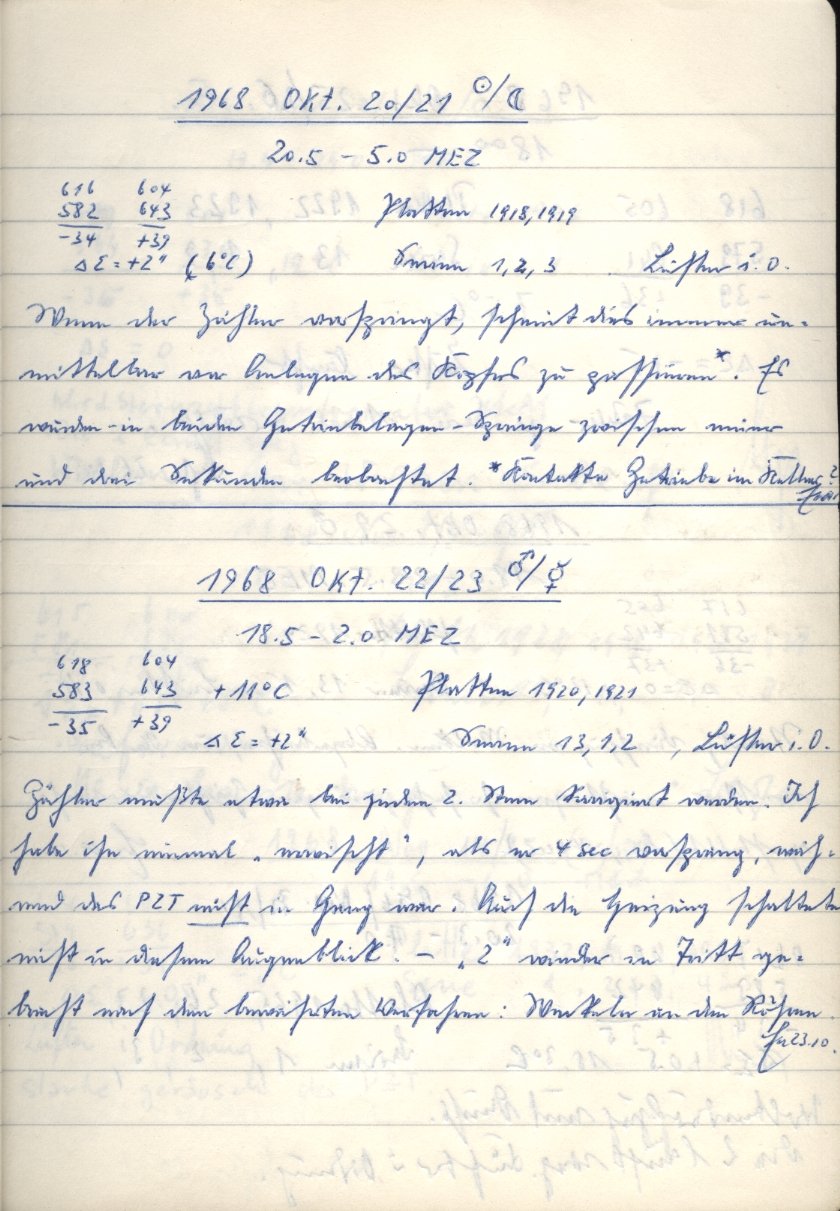 1968 Okt. 20/21 ☉/☾
20.5 – 5.0 MEZ
616 604
582 643 Platten 1918, 1919
-34 +39
Δε = +2" (6°C) Serien 1, 2, 3 Lüfter i.O.
Wenn der Zähler vorspringt, scheint dies immer un-
mittelbar vor Anlegen des Kopfes zu passieren*. Es
wurden - in beiden Getriebelagen - Sprünge zwischen einer
und drei Sekunden beobachtet. *Kontakte Getriebe im Keller?
1968 Okt. 22/23 ♂/☿
18.5 – 2.0 MEZ
618 604
583 643 +11°C Platten 1920, 1921
-35 +39
Δε = +2" Serien 13, 1, 2, Lüfter i.O.
Zähler mußte etwa bei jedem 2. Stern korrigiert werden. Ich
habe ihn einmal "erwischt", als er 4 sec vorsprang, wäh-
rend das PZT nicht in Gang war. Auch die Heizung schaltete
nicht in diesem Augenblick. – "2" wieder in Tritt ge-
bracht nach dem bewährten Verfahren: Wackeln an den Röhren.
23.10.